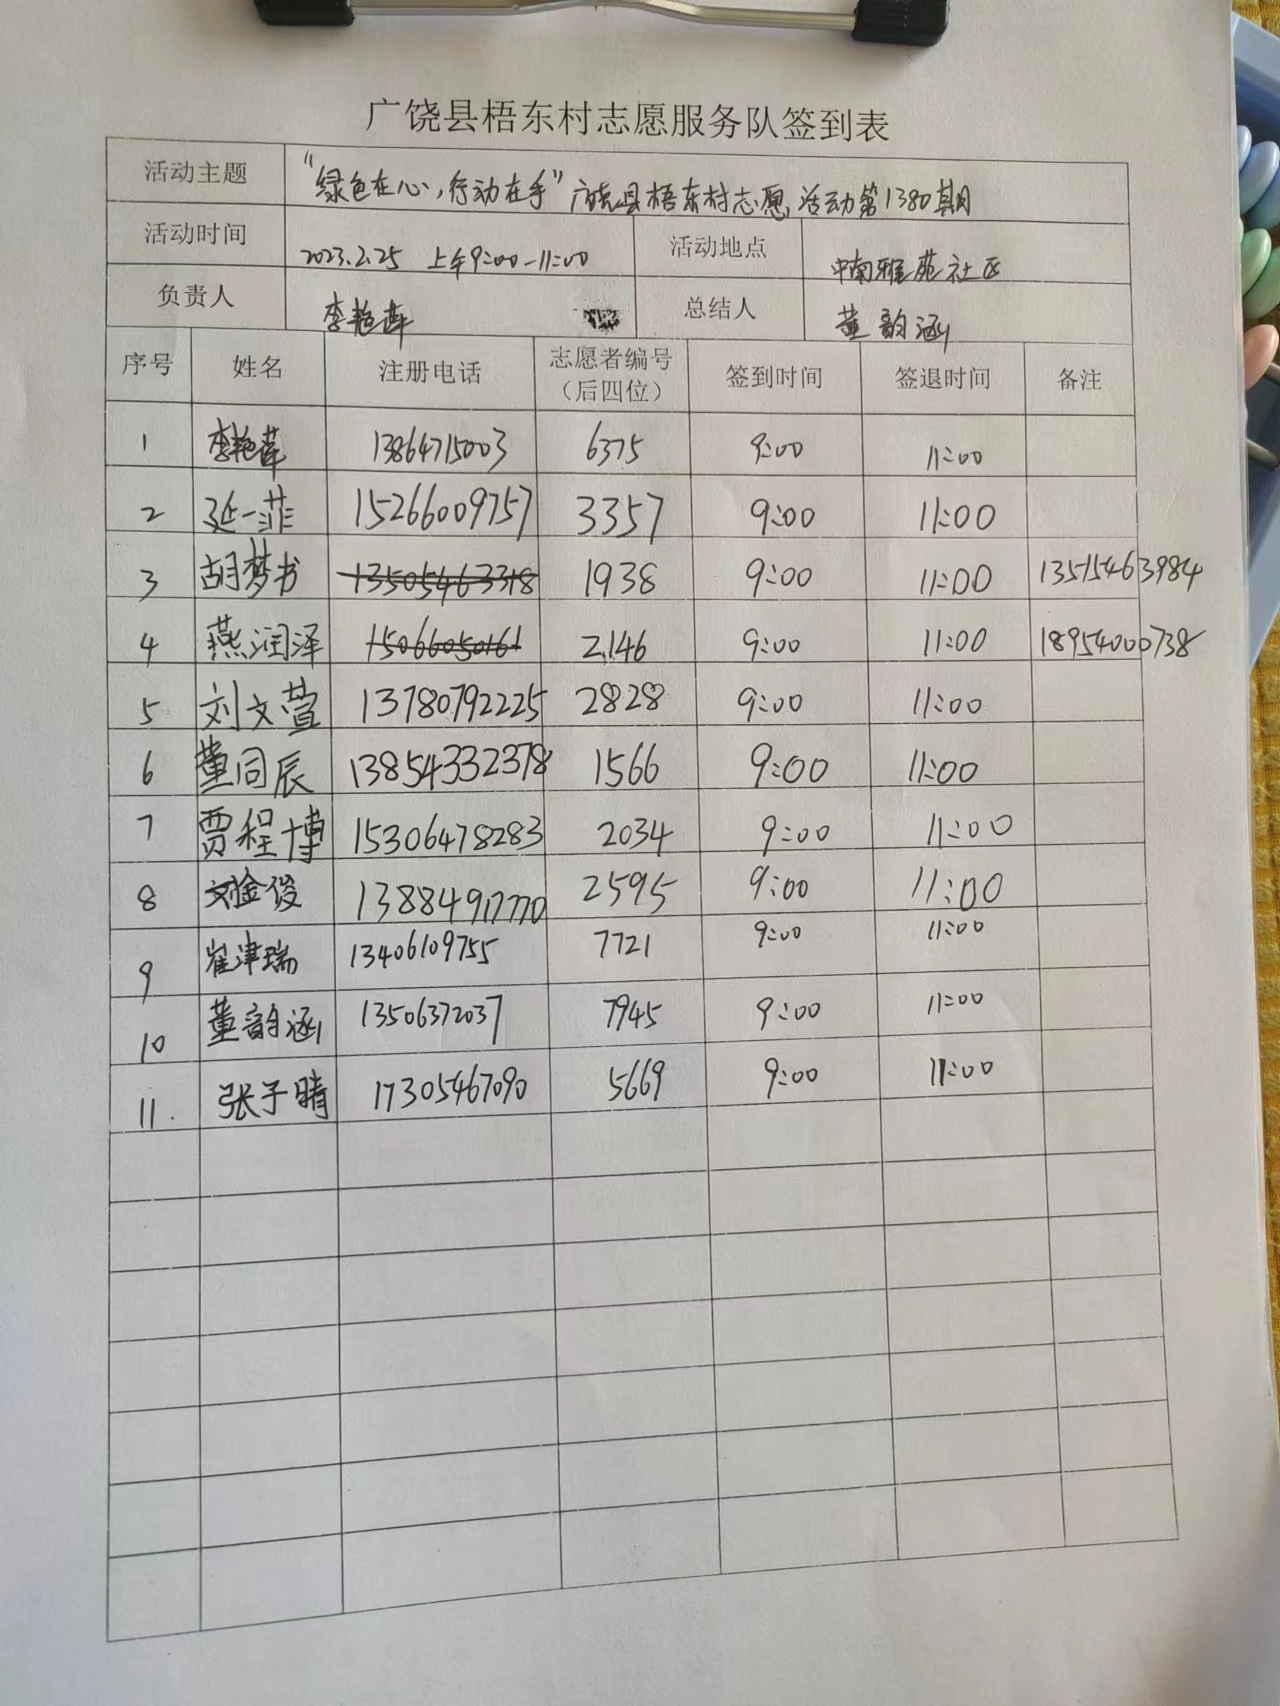 广饶县梧东村志愿服务队签到表
活动主题 "绿色在心,行动在手"广饶县梧东村志愿活动第1380期
活动时间 2023.2.25 上午9:00-11:00 活动地点 中南雅苑社区
负责人 李艳萍 总结人 董韵涵
序号 姓名 注册电话 志愿者编号(后四位) 签到时间 签退时间 备注
1 李艳萍 13864715003 6375 9:00 11:00
2 延一菲 15266009757 3357 9:00 11:00
3 胡梦书 13505463318 1938 9:00 11:00 13515463984
4 燕润泽 15066050161 2146 9:00 11:00 18954000738
5 刘文萱 13780792225 2828 9:00 11:00
6 董同辰 13854332378 1566 9:00 11:00
7 贾程博 15306478283 2034 9:00 11:00
8 刘金俊 13884917770 2595 9:00 11:00
9 崔津瑞 13406109755 7721 9:00 11:00
10 董韵涵 13506372037 7945 9:00 11:00
11. 张子晴 17305467090 5669 9:00 11:00